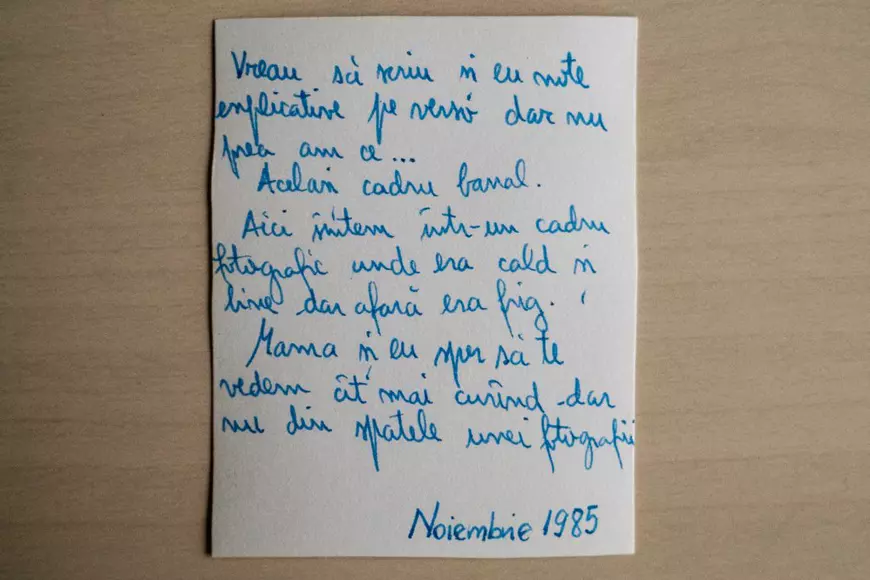 Vreau să scriu și eu note
explicative pe verso dar nu
prea am ce...
Același cadru banal.
Aici sîntem într-un cadru
fotografic unde era cald și
bine dar afară era frig.
Mama și eu sper să te
vedem cît mai curînd -dar
nu din spatele unei fotografii
Noiembrie 1985